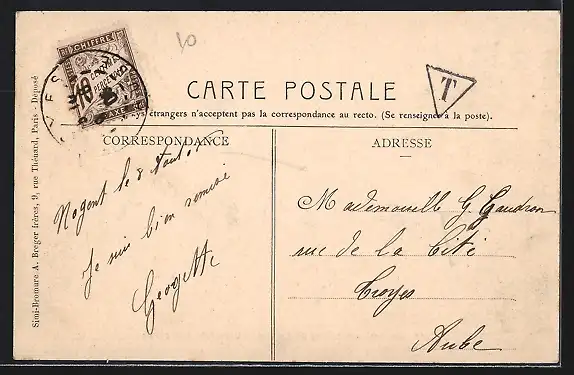 10
CHIFFRE
10
TAXE
T
CARTE POSTALE
pays étrangers n'acceptent pas la correspondance au recto. (Se renseigner à la poste).
CORRESPONDANCE
ADRESSE
Nogent le 8
Je suis bien
Georgette
Mademoiselle G. Gaudron
rue de la Cité
Troyes
Aube
Simi-Bromure A. Breger frères, 9, rue Thénard, Paris - Déposé